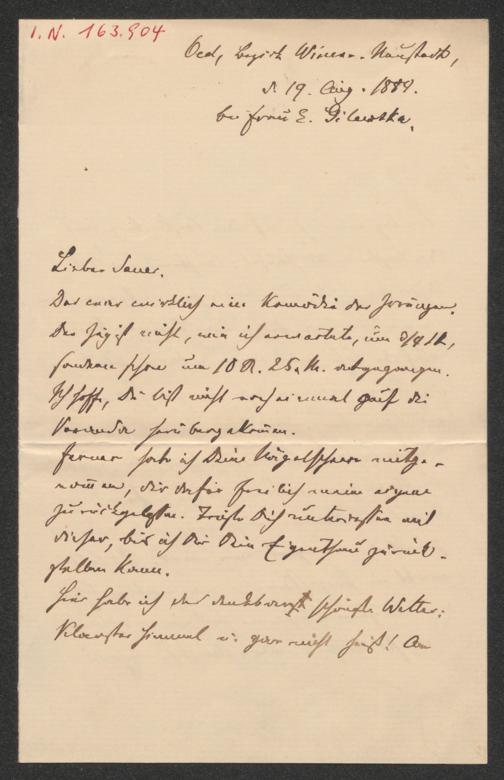 I.N. 163.904
Oed, Bezirk Wiener-Neustadt,
d. 19. Aug. 1889.
bei Frau E.
Lieber Sauer.
Das war wirklich eine Komödie der Irrungen.
Der Zug ist nicht, wie ich erwartete, um 3/4 11,
sondern schon um 10 U. 25 M. abgegangen.
Ich hoffe, Du bist nicht noch einmal auf die
Veranda herübergekommen.
Ferner habe ich Deine Nägelschere mitge-
nom̄en, Dir dafür freilich meine eigene
zurückgelassen. Tröste Dich unterdessen mit
dieser, bis ich Dir Dein Eigenthum zurück-
stellen kann.
Hier habe ich das denkbarst schönste Wetter:
Himmel u. gar nicht heiß! Am